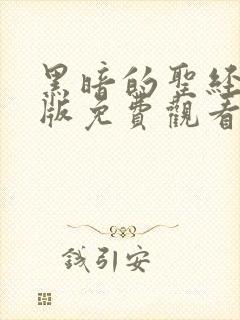 黑暗的聖經
版免費觀看
錢引安